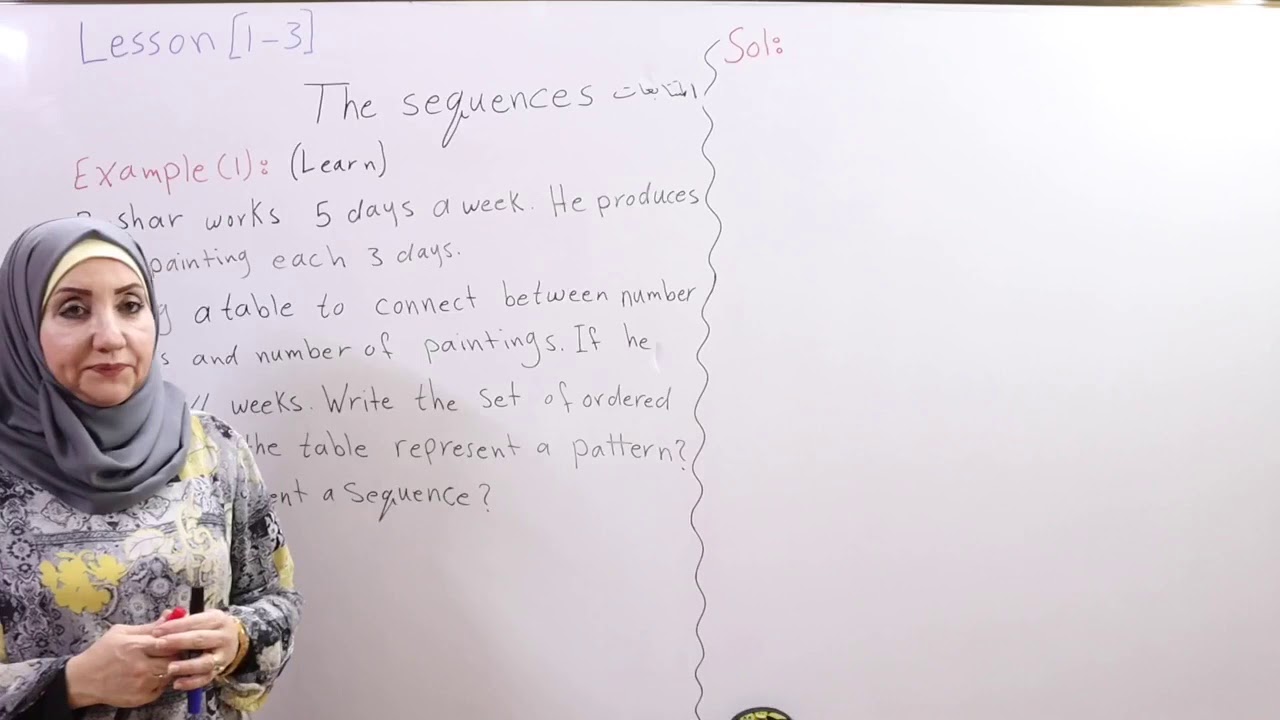 Lesson [1-3]
The sequences المتتابعات
Example (1): (Learn)
shar works 5 days a week. He produces
painting each 3 days.
a table to connect between number
and number of paintings. If he
weeks. Write the set of ordered
the table represent a pattern?
a sequence?
Sol: